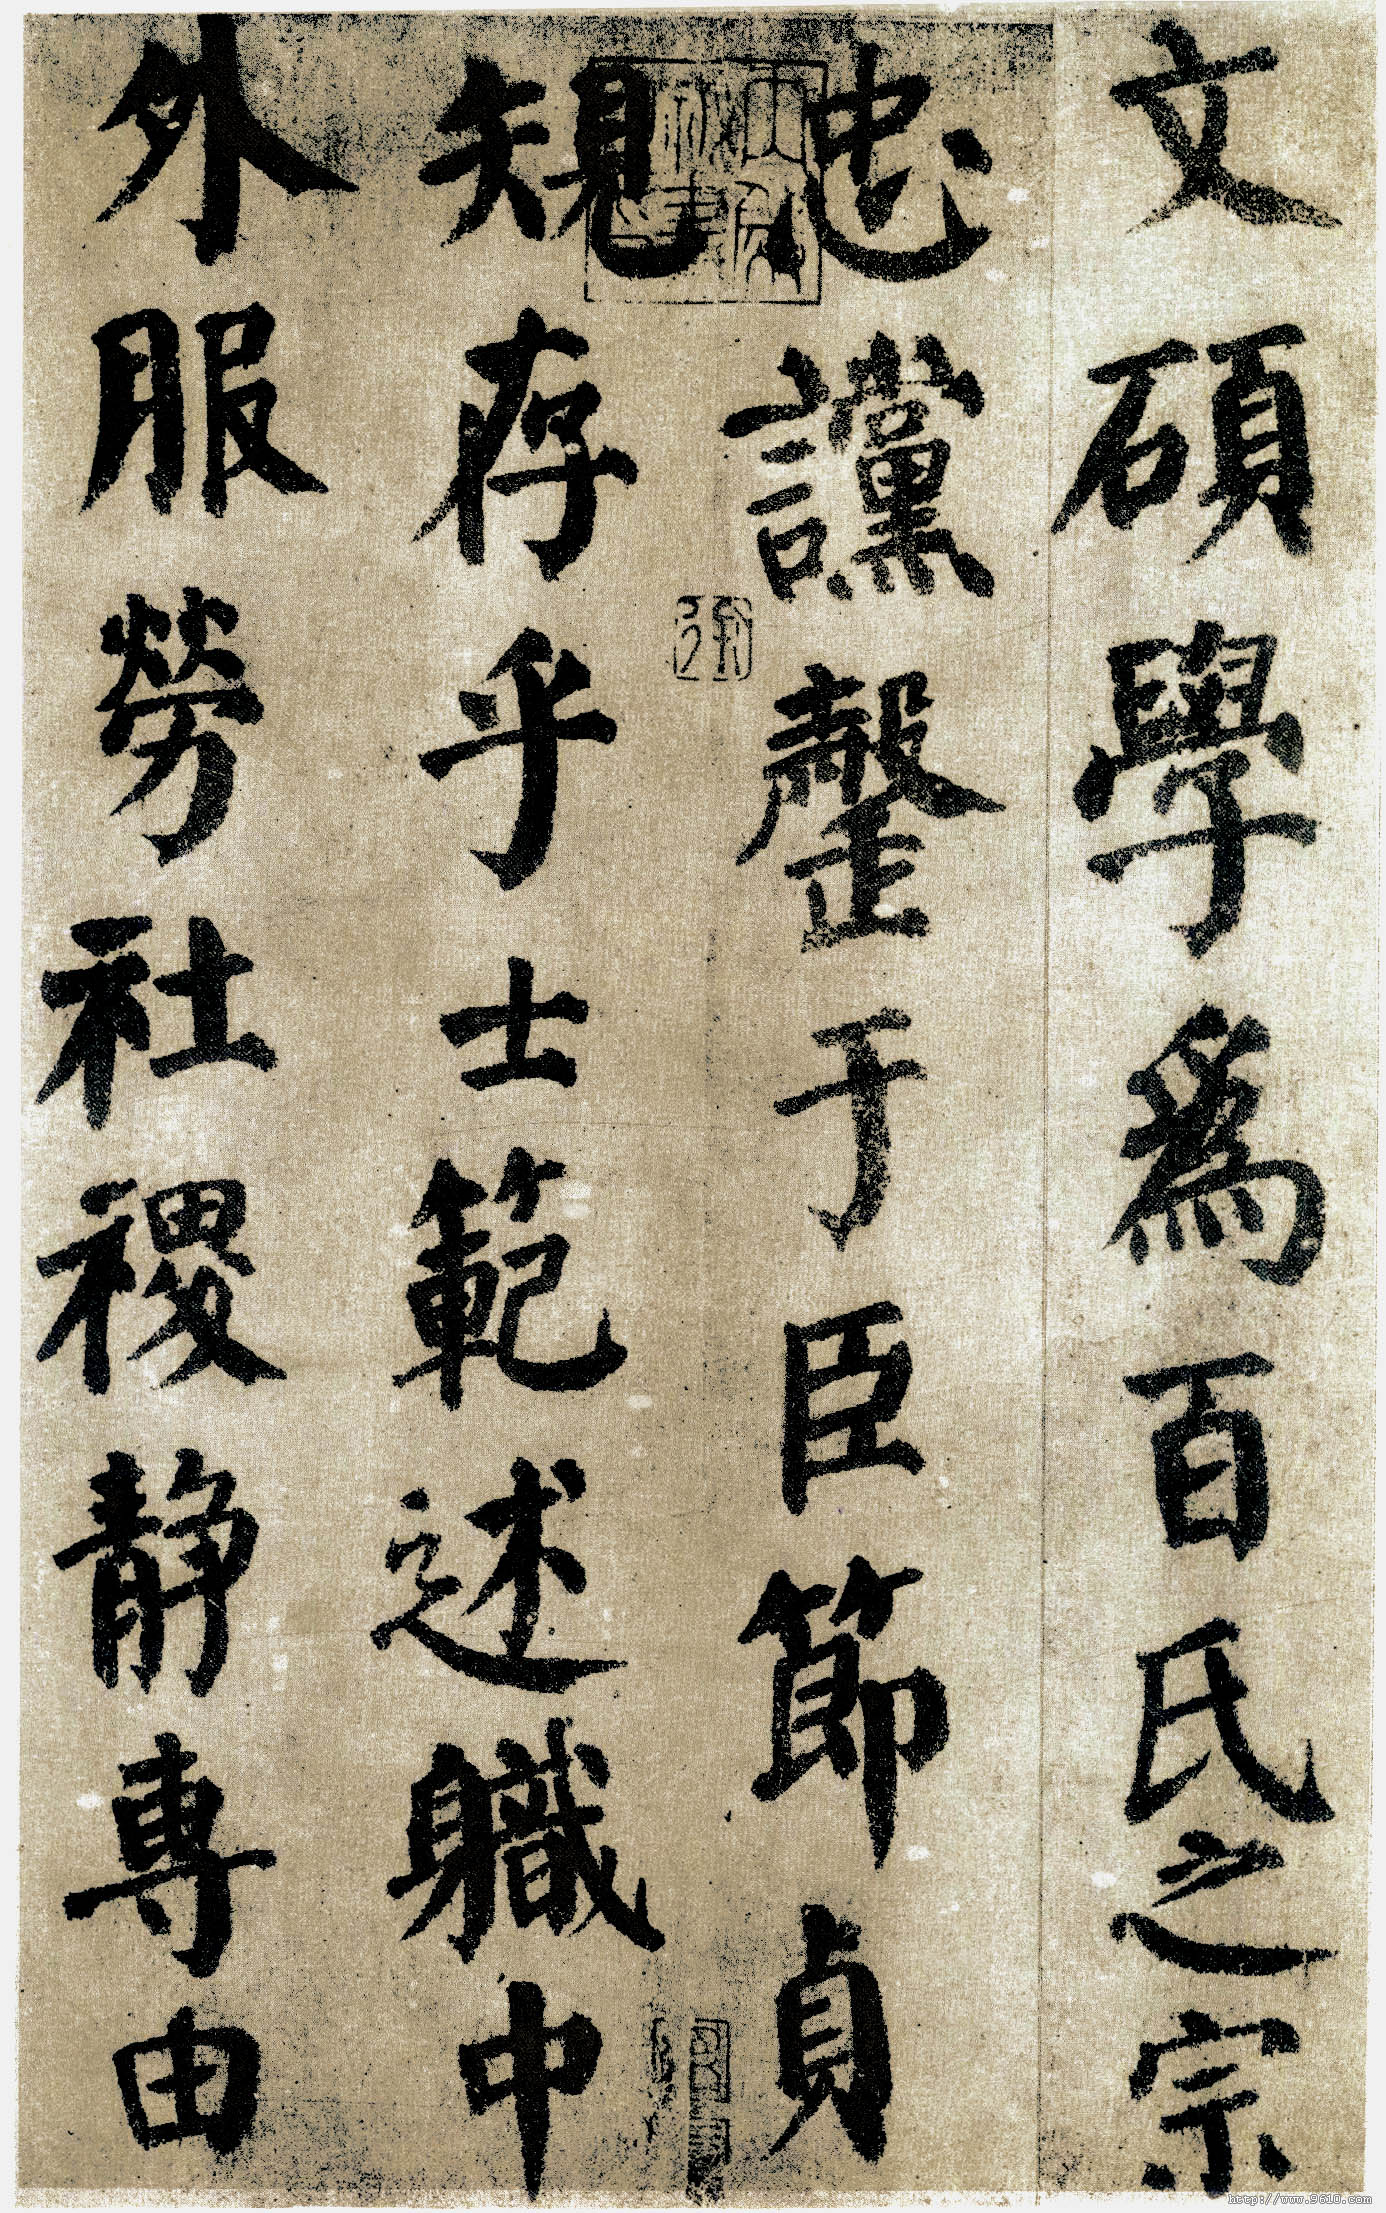 文碩學爲百氏之宗
忠讜罄于臣節貞
規存乎士範述職中
外服勞社稷静專由
http://www.9610.com